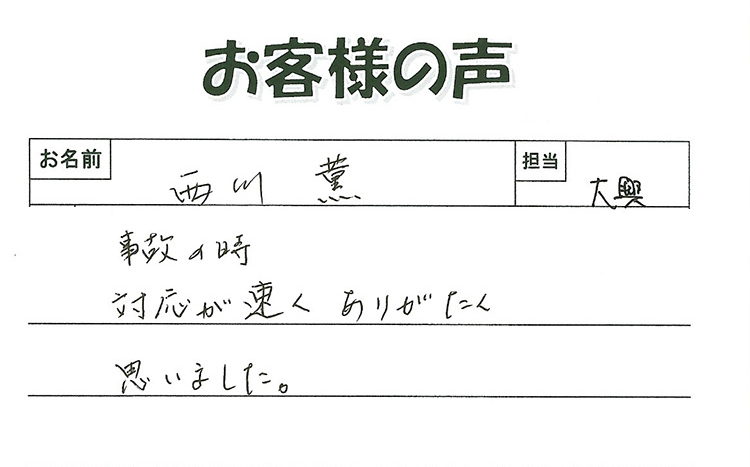 お客様の声
お名前 西川 薫 担当 大興
事故の時
対応が速く ありがたく
思いました。